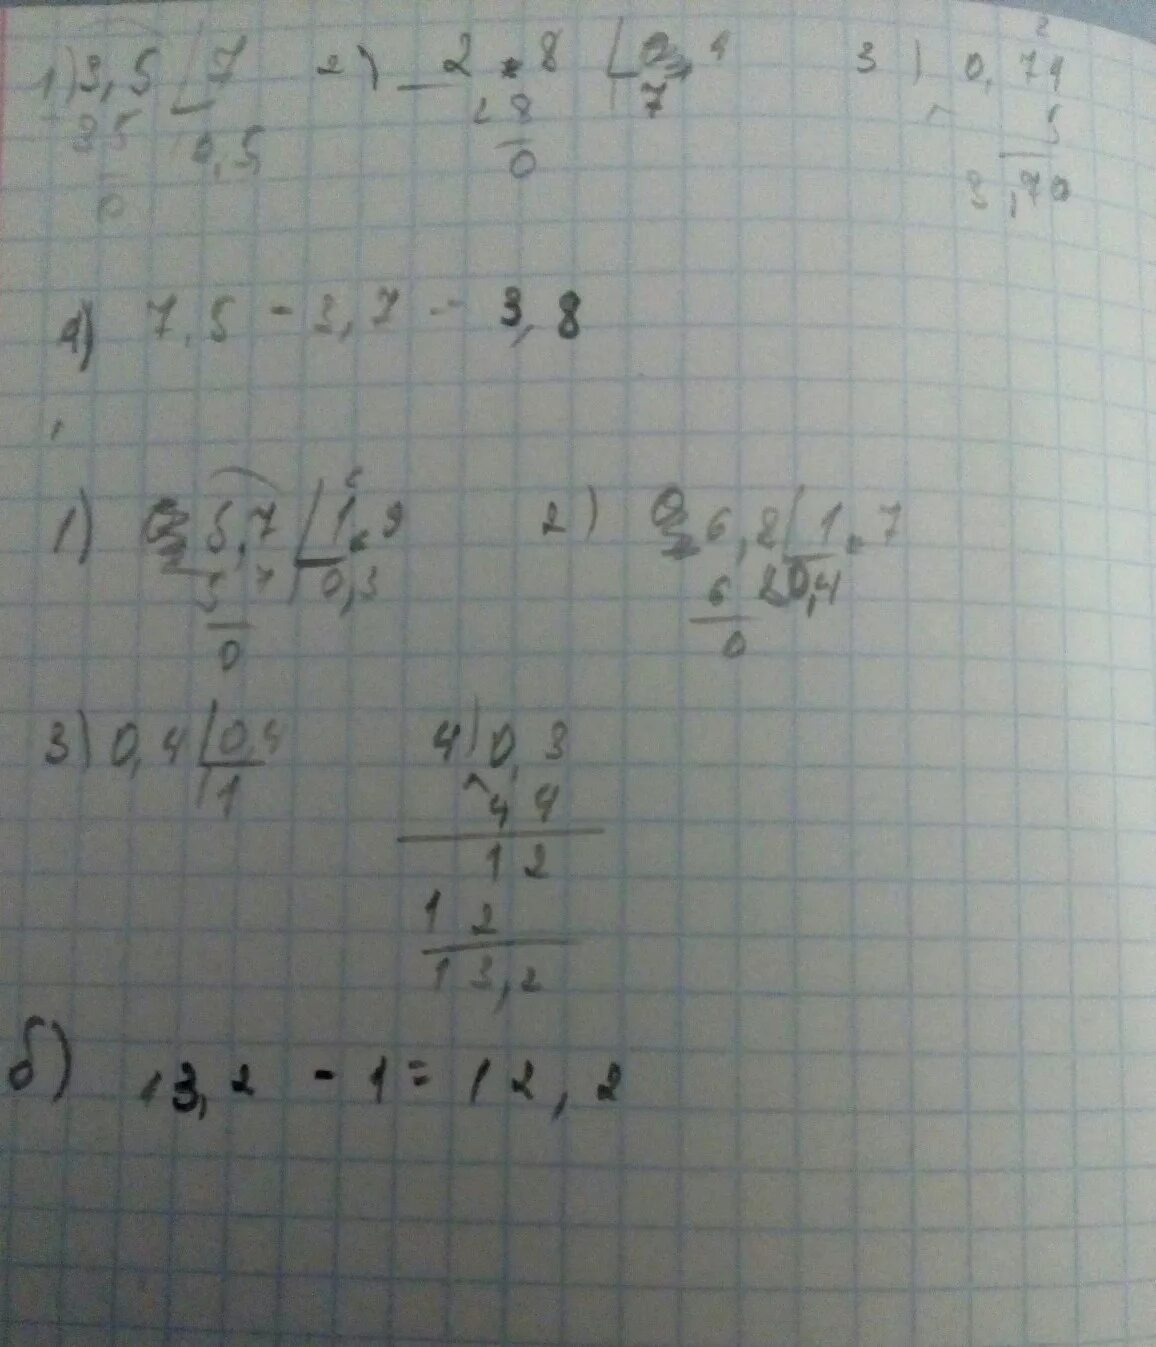 1) 3,5 7 2) 2,8 0,4 3) 0,74
35 0,5 28 7 5
0 0 3,70
4) 7,5 - 3,7 = 3,8
1) 5,7 1,9 2) 6,8 1,7
5 7 0,3 6 8 0,4
0 0
3) 0,4 0,4 4) 0,3
1 44
12
12
13,2
б) 13,2 - 1 = 12,2